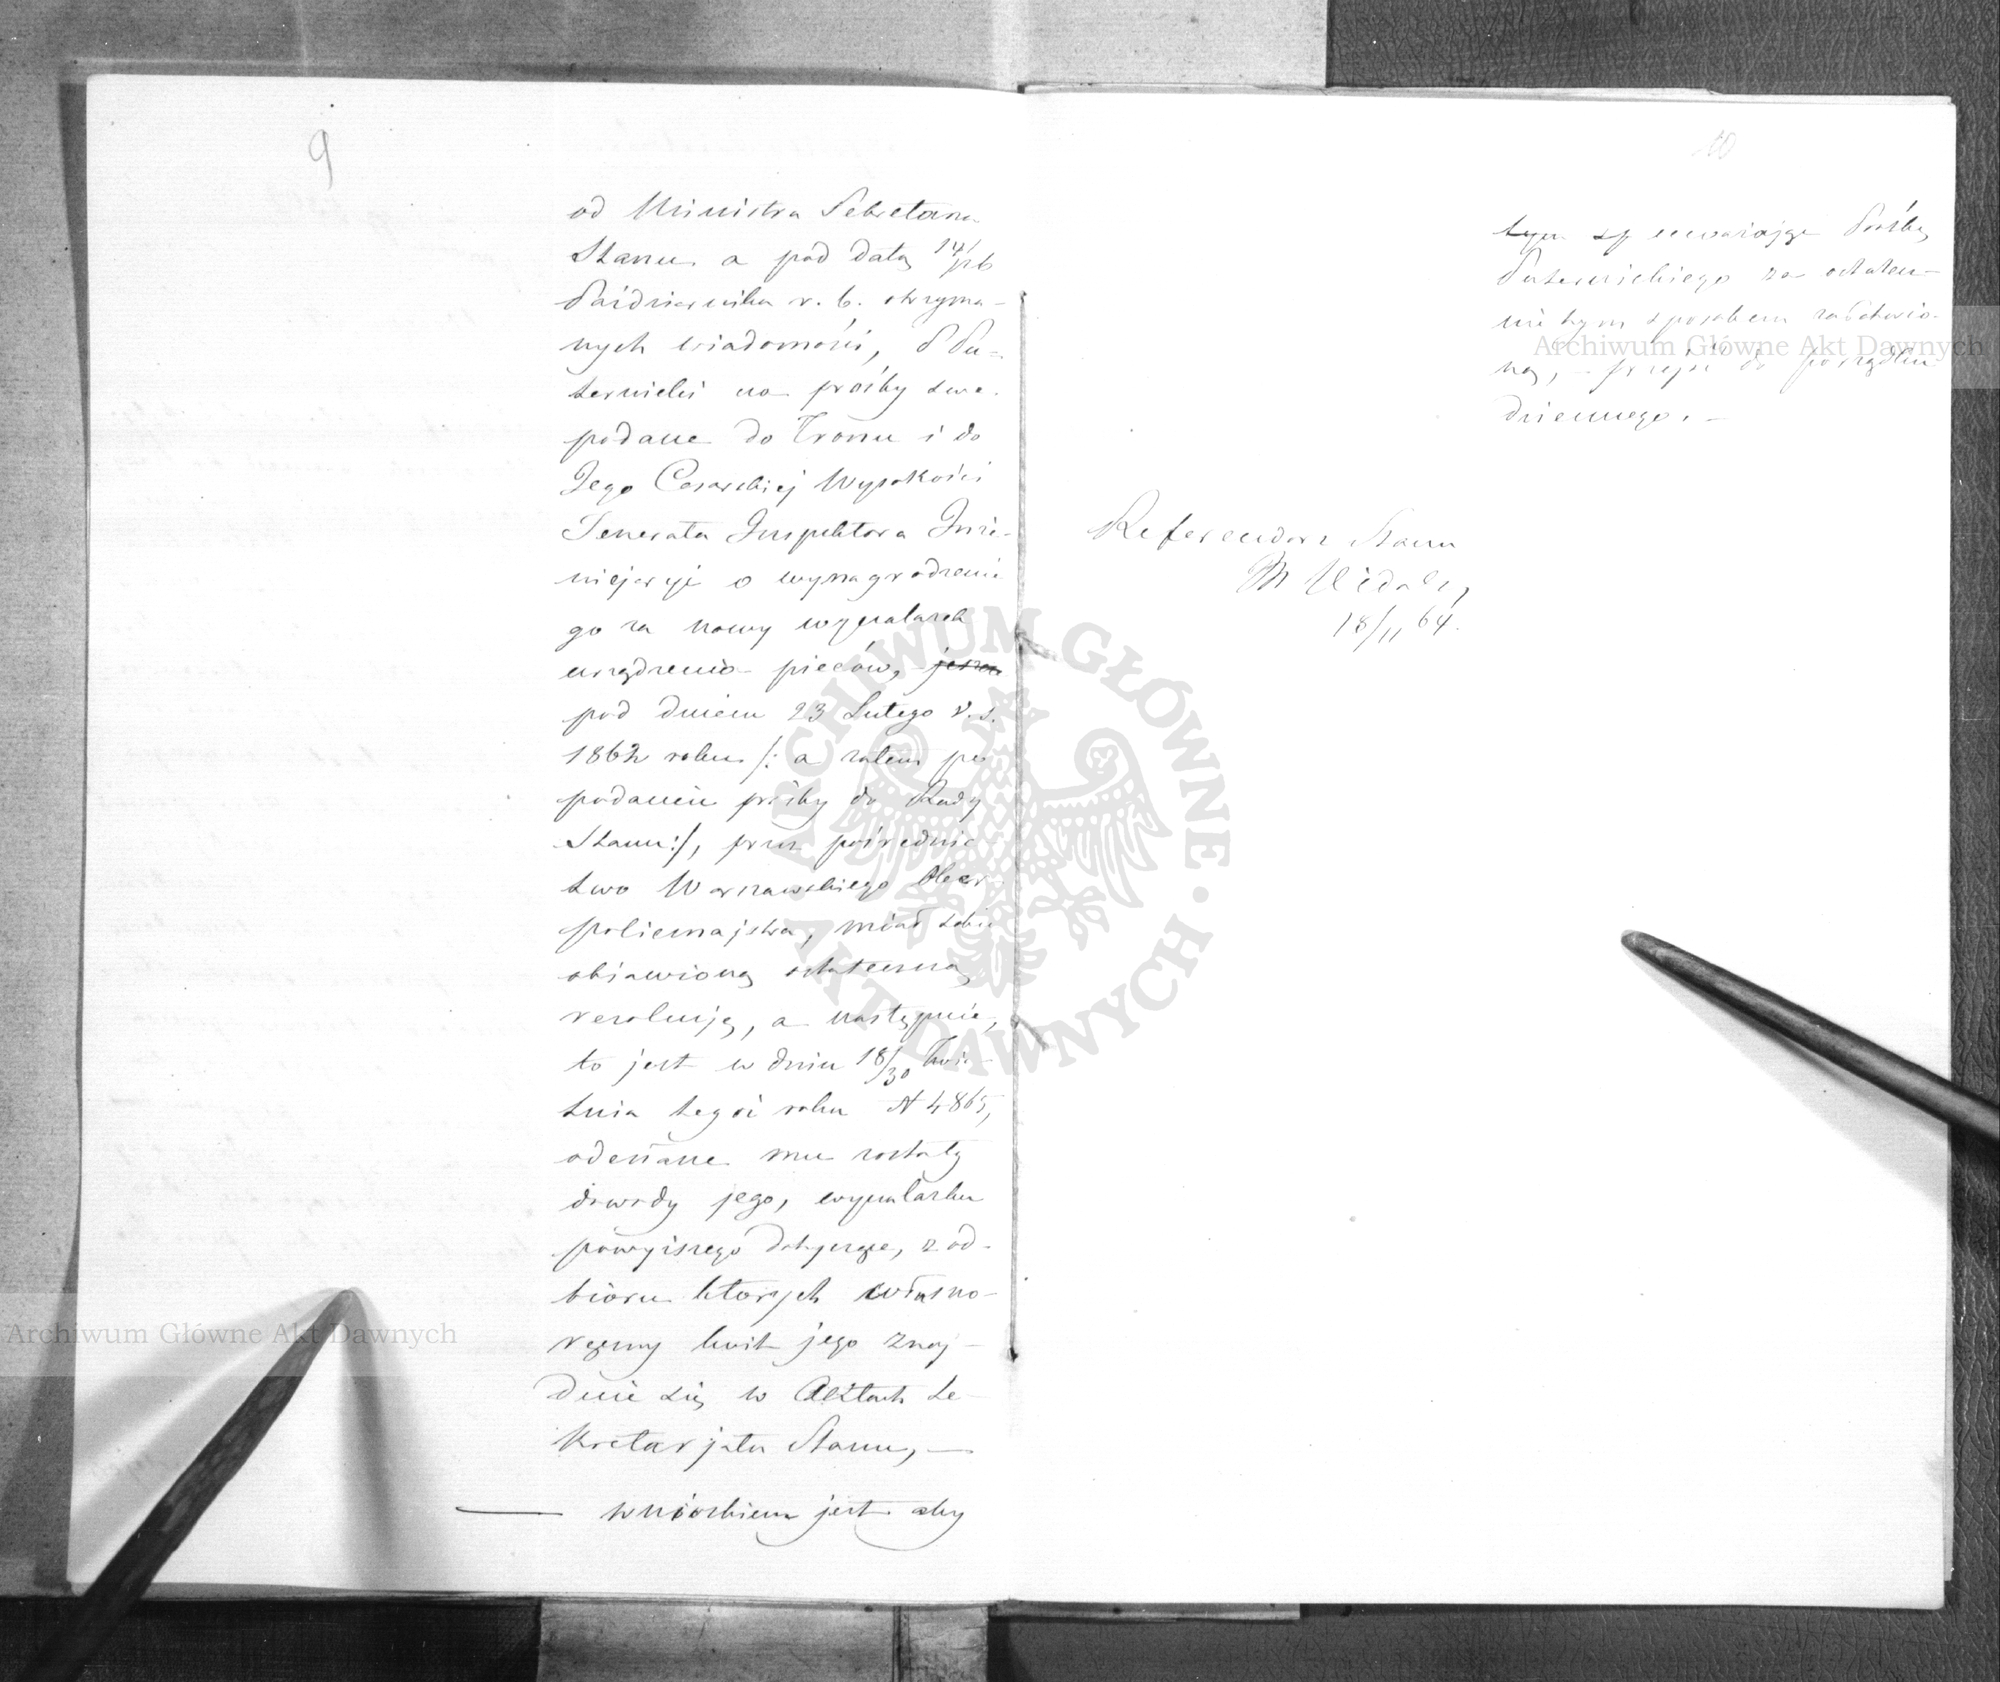 9
od Ministra Sekretarza
Stanu a pod datą 14/26
Października r. b. otrzyma-
nych wiadomości, P Pu-
ternicki na prośby swe
podane do Tronu i do
Jego Cesarskiej Wysokości
Jenerała Inspektora Inże-
nierji o wynagrodzenie
go za nowy wynalazek
urządzenia pieców,
pod dniem 23 Lutego v. s.
1862 roku /: a zatem po
podaniu prośby do Rady
Stanu :/, przez pośrednic
two Warszawskiego Ober
policmajstra, miał sobie
objawioną ostateczną
rezolucję, a następnie,
to jest w dniu 18/30 Kwie-
tnia tegoż roku N 4865,
odesłane mu zostały
dowody jego, wynalazku
powyższego dotyczące, z od-
bioru których własno-
ręczny kwit jego znaj-
duje się w Aktach Se-
kretarjatu Stanu, —
— wnioskiem jest aby
10
uważając Prośbę
Puternickiego za ostatecz-
nie tym sposobem załatwio-
ną, – przejść do porządku
dziennego. –
Referendarz Stanu
18/11 64.
Archiwum Główne Akt Dawnych
Archiwum Główne Akt Dawnych
ARCHIWUM GŁÓWNE · AKT DAWNYCH ·